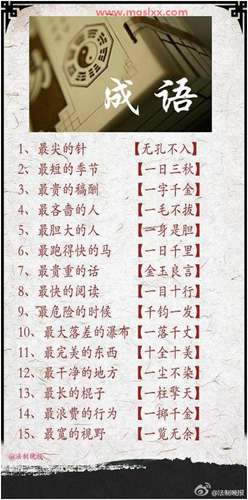 www.mgslxx.com
成语
1、最尖的针 【无孔不入】
2、最短的季节 【一日三秋】
3、最贵的稿酬 【一字千金】
4、最吝啬的人 【一毛不拔】
5、最胆大的人 【一身是胆】
6、最跑得快的马 【一日千里】
7、最贵重的话 【金玉良言】
8、最快的阅读 【一目十行】
9、最危险的时候 【千钧一发】
10、最大落差的瀑布【一落千丈】
11、最完美的东西 【十全十美】
12、最干净的地方 【一尘不染】
13、最长的棍子 【一柱擎天】
14、最浪费的行为 【一掷千金】
15、最宽的视野 【一览无余】
@法制晚报
@法制晚报